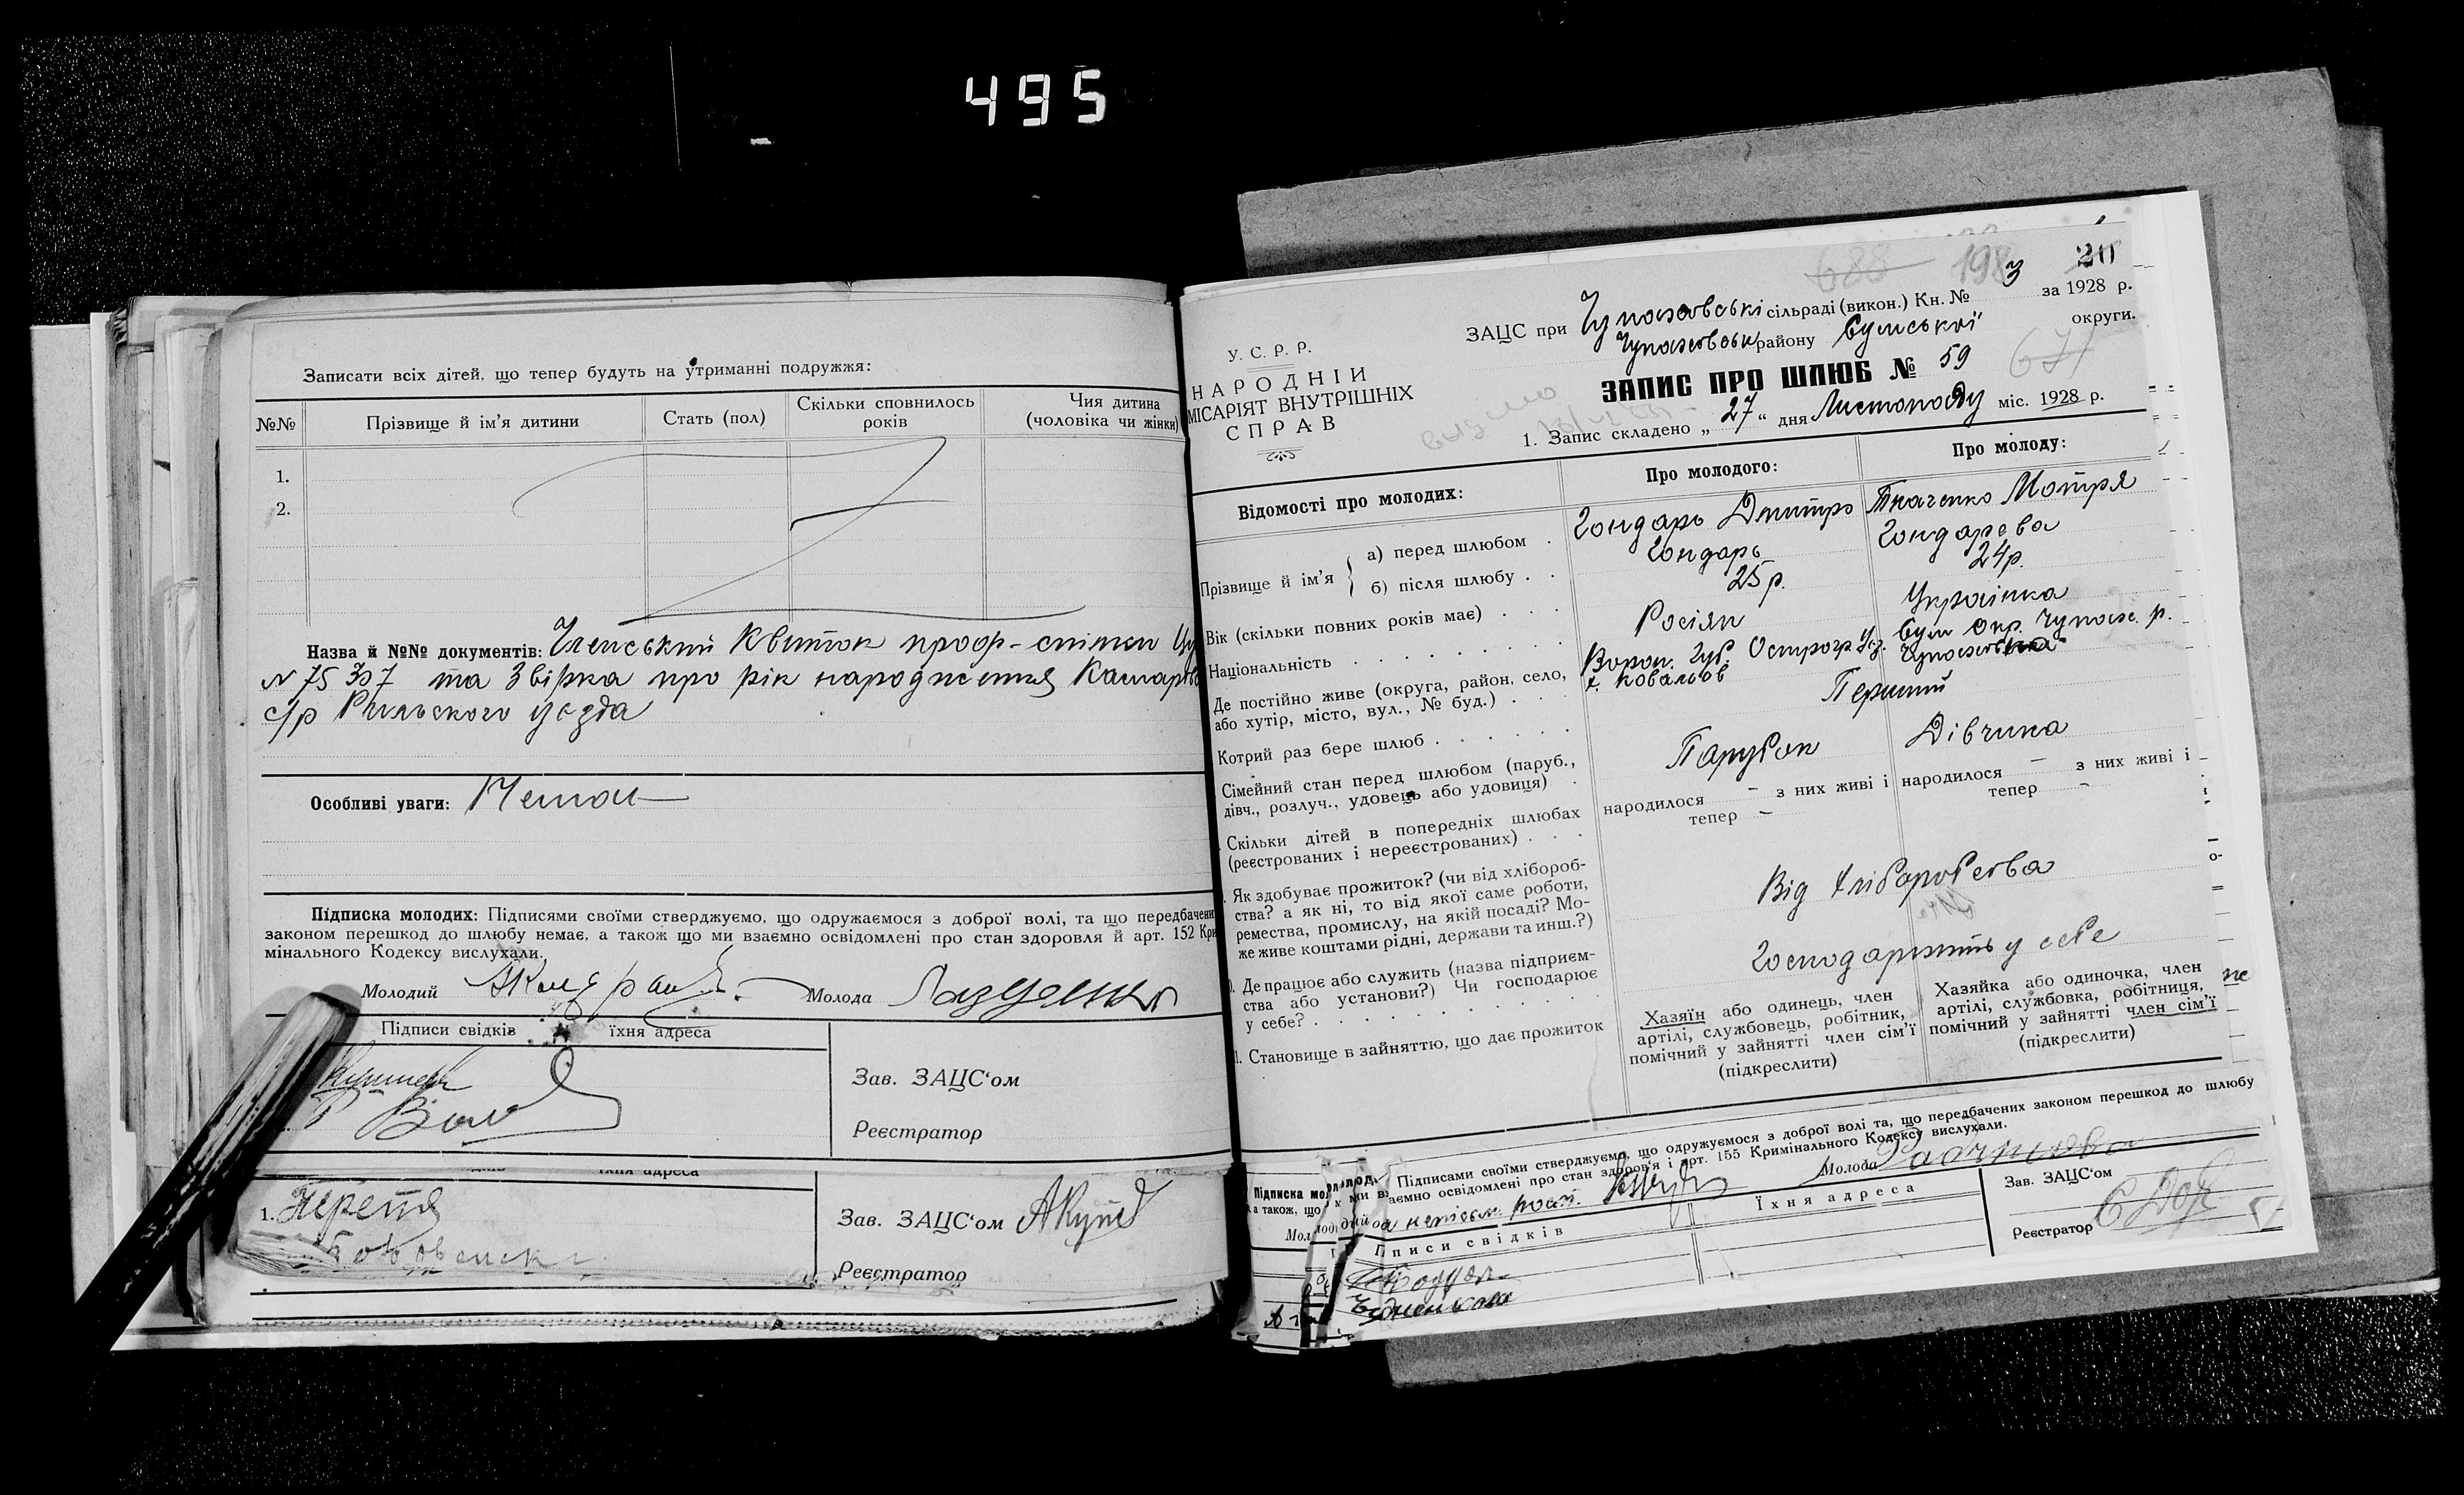 495
Записати всіх дітей, що тепер будуть на утриманні подружжя:
№№ Прізвище й ім'я дитини Стать (пол) Скільки сповнилось років Чия дитина (чоловіка чи жінки)
1.
2.
Назва й №№ документів: Членський квиток проф-спілки
№ 75307 та Звірка про рік народження
с/р Рильского уезда
Особливі уваги: Немає
Підписка молодих: Підписями своїми стверджуємо, що одружаємося з доброї волі, та що передбачени
законом перешкод до шлюбу немає, а також що ми взаємно освідомлені про стан здоровля й арт. 152 Кри
мінального Кодексу вислухали.
Молодий Молода
Підписи свідків їхня адреса
Зав. ЗАЦС'ом
Реєстратор
їхня адреса
1.
Зав. ЗАЦС'ом
Реєстратор
688 198 20
У. С. Р. Р.
НАРОДНІЙ
МІСАРІЯТ ВНУТРІШНІХ
СПРАВ
ЗАЦС при Чупахівські сільраді (викон.) Кн. № 3 за 1928 р.
Чупахівськ району Сумської округи.
ЗАПИС ПРО ШЛЮБ № 59
671
1. Запис складено „27" дня Листопаду міс. 1928 р.
Відомості про молодих: Про молодого: Про молоду:
Прізвище й ім'я а) перед шлюбом . Гондарь Дмитро Ткаченко Мотря
б) після шлюбу . . Гондарь Гондарева
Вік (скільки повних років має) . . . 25 р. 24 р.
Національність . . . . . . . . . Росіян Українка
Де постійно живе (округа, район, село,
або хутір, місто, вул., № буд.) . . .
Ворон. Губ. Острогр. Уз. Сум окр. Чупах. р.
х. Ковальов Чупахівка
Котрий раз бере шлюб . . . . . . Перший
Сімейний стан перед шлюбом (паруб.,
дівч., розлуч., удовець або удовиця) .
Парубок Дівчина
Скільки дітей в попередніх шлюбах
(реєстрованих і нереєстрованих) . . .
народилося – з них живі і тепер –
народилося – з них живі і тепер –
Як здобуває прожиток? (чи від хлібороб-
ства? а як ні, то від якої саме роботи,
ремества, промислу, на якій посаді? Мо-
же живе коштами рідні, держави та инш.?)
Від хліборобства
Де працює або служить (назва підприєм-
ства або установи?) Чи господарює
у себе? . . . . . . . . . . . .
Господарюють у себе
1. Становище в зайняттю, що дає прожиток
Хазяїн або одинець, член
артілі, службовець, робітник,
помічний у зайнятті член сім'ї
(підкреслити)
Хазяйка або одиночка, член
артілі, службовка, робітниця,
помічний у зайнятті член сім'ї
(підкреслити)
Підписами своїми стверджуємо, що одружуємося з доброї волі та, що передбачених законом перешкод до шлюбу
аємно освідомлені про стан здоров'я і арт. 155 Кримінального Кодексу вислухали.
Підписка мол
а також, що
Молода
писи свідків Їхня адреса
Зав. ЗАЦС'ом
Реєстратор